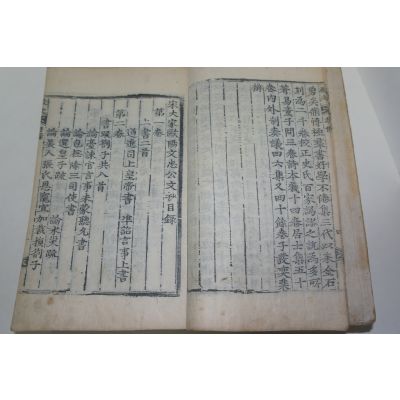 勇矣脩博極羣書好學不倦集三代以來金石
刻爲一千卷校正史氏百家訛謬之說爲多所
著易童子問三卷詩本義十四卷居士集五十
卷內外制奏議四六集又四十餘卷子發奕棐
辯
宋大家歐陽文忠公文抄目錄
第一卷
上書二首
通進司上皇帝書 准詔言事上書
第二卷
書疏劄子共八首
論臺諫官言事未蒙聽允書
論包拯除三司使書
論選皇子疏 論水災疏
論美人張氏恩寵宜加裁損劄子